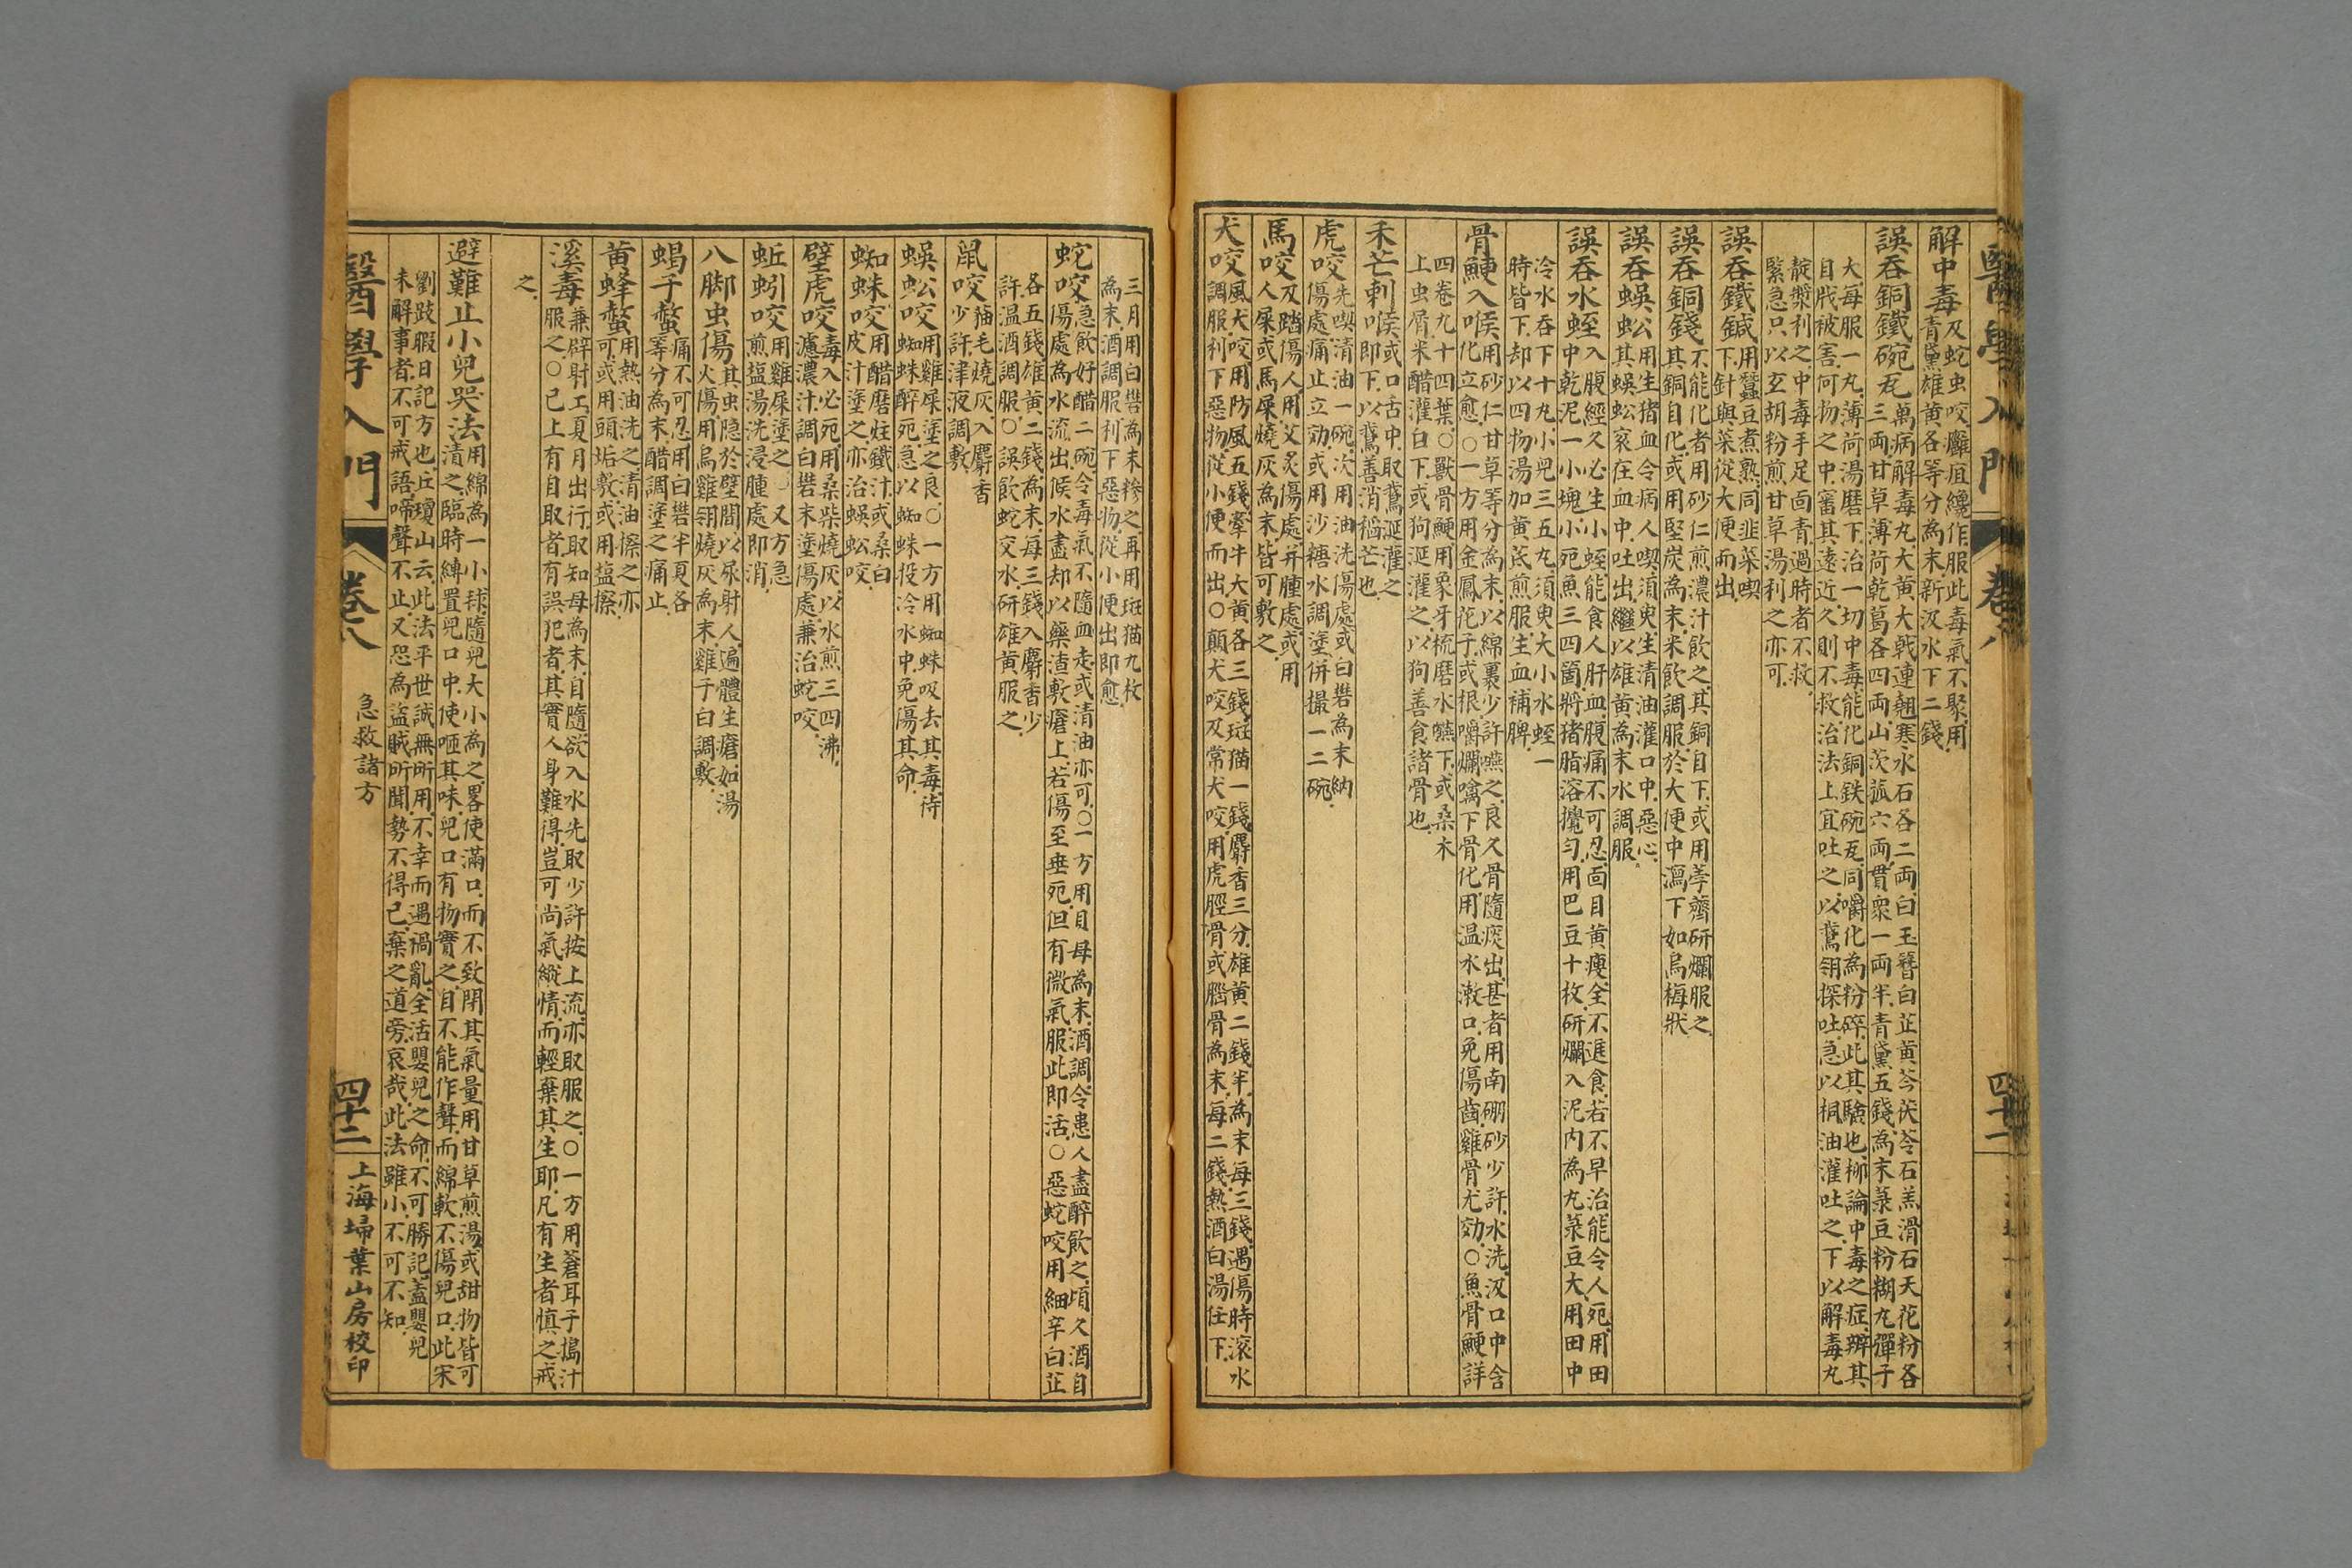 醫學入門 卷八 四十一
解中毒及蛇虫咬癰疽纔作服此毒氣不聚用
青黛雄黃各等分為末新汲水下二錢
誤吞銅鐵碗瓦萬病解毒丸大黃大戟連翹寒水石各二両白玉簪白芷黃芩茯苓石羔滑石天花粉各
三両甘草薄荷乾葛各四両山茨菰六両貫衆一両半青黛五錢為末菉豆粉糊丸彈子
大每服一丸薄荷湯磨下治一切中毒能化銅鉄碗瓦同嚼化為粉碎此其驗也栁論中毒之症辨其
目戕被害何物之中審其遠近久則不救治法上宜吐之以鵞翎探吐急以桐油灌吐之下以解毒丸
靛漿利之中毒手足靣青過時者不救
緊急只以玄胡粉煎甘草湯利之亦可
誤吞鐵鍼用蠶豆煮熟同韭菜喫
下針與菜從大便而出
誤吞銅錢不能化者用砂仁煎濃汁飲之其銅自下或用荸薺研爛服之
其銅自化或用堅炭為末米飲調服於大便中瀉下如烏梅狀
誤吞蜈蚣用生猪血令病人喫須臾生清油灌口中惡心
其蜈蚣衮在血中吐出繼以雄黃為末水調服
誤吞水蛭入腹經久必生小蛭能食人肝血腹痛不可忍靣目黃瘦全不進食若不早治能令人死用田
中乾泥一小塊小死魚三四箇將猪脂溶攪勻用巴豆十枚研爛入泥內為丸菉豆大用田中
冷水吞下十丸小兒三五丸須臾大小水蛭一
時皆下却以四物湯加黃芪煎服生血補脾
骨鯁入喉用砂仁甘草等分為末以綿裹少許嚥之良久骨隨痰出甚者用南硼砂少許水洗汲口中含
化立愈○一方用金鳳花子或根嚼爛噙下骨化用温水漱口免傷齒雞骨尤効○魚骨鯁詳
四卷九十四葉○獸骨鯁用象牙梳磨水嚥下或桑木
上虫屑米醋灌白下或狗涎灌之以狗善食諸骨也
禾芒刺喉或口舌中取鵞涎灌之
即下以鵞善消稻芒也
虎咬先喫清油一碗次用油洗傷處或白礬為末納
傷處痛止立効或用沙糖水調塗併撮一二碗
馬咬及踏傷人用艾炙傷處并腫處或用
人屎或馬屎燒灰為末皆可敷之
犬咬風犬咬用防風五錢牽牛大黃各三錢斑猫一錢麝香三分雄黃二錢半為末每三錢遇傷時滚水
調服利下惡物從小便而出○顛犬咬及常犬咬用虎脛骨或腦骨為末每二錢熱酒白湯任下
三月用白礬為末糝之再用斑猫九枚
為末酒調服利下惡物從小便出即愈
蛇咬急飲好醋二碗令毒氣不隨血走或清油亦可○一方用貝母為末酒調令患人盡醉飲之頃久酒自
傷處為水流出候水盡却以藥渣敷瘡上若傷至垂死但有微氣服此即活○惡蛇咬用細辛白芷
各五錢雄黃二錢為末每三錢入麝香少
許温酒調服○誤飲蛇交水研雄黃服之
鼠咬猫毛燒灰入麝香
少許津液調敷
蜈蚣咬用雞屎塗之良○一方用蜘蛛吸去其毒待
蜘蛛醉死急以蜘蛛投冷水中免傷其命
蜘蛛咬用醋磨炷鐵汁或桑白
皮汁塗之亦治蜈蚣咬
壁虎咬毒入必死用桑柴燒灰以水煎三四沸
濾濃汁調白礬末塗傷處兼治蛇咬
蚯蚓咬用雞屎塗之○又方急
煎塩湯洗浸腫處即消
八脚虫傷其虫隐於壁間以尿射人遍體生瘡如湯
火傷用烏雞翎燒灰為末雞子白調敷
蝎子螫痛不可忍用白礬半夏各
等分為末醋調塗之痛止
黃蜂螫用熱油洗之清油擦之亦
可或用頭垢敷或用塩擦
溪毒兼辟射工夏月出行取知母為末自隨欲入水先取少許按上流亦取服之○一方用蒼耳子搗汁
服之○已上有自取者有誤犯者其實人身難得豈可尚氣縱情而輕棄其生耶凡有生者慎之戒
之
避難止小兒哭法用綿為一小毬隨兒大小為之畧使滿口而不致閉其氣量用甘草煎湯或甜物皆可
漬之臨時縛置兒口中使咂其味兒口有物實之自不能作聲而綿軟不傷兒口此宋
劉跂暇日記方也丘瓊山云此法平世誠無所用不幸而遇禍亂全活嬰兒之命不可勝記蓋嬰兒
未解事者不可戒語啼聲不止又恐為盜賊所聞勢不得已棄之道旁哀哉此法雖小不可不知
醫學入門 卷八 急救諸方 四十二 上海埽葉山房校印